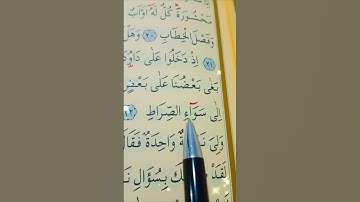 مَحْشُورَةً كُلٌّ لَهُٓ اَوَّابٌ
وَفَصْلَ الْخِطَابِ ﴿٢٠﴾ وَهَلْ
﴿٢١﴾ اِذْ دَخَلُوا عَلٰى دَاوُدَ
بَغٰى بَعْضُنَا عَلٰى بَعْضٍ
اِلٰى سَوَٓاءِ الصِّرَاطِ ﴿٢٢﴾
وَلِيَ وَاحِدَةٌ فَقَالَ
لَقَدْ بِسُؤَالِ